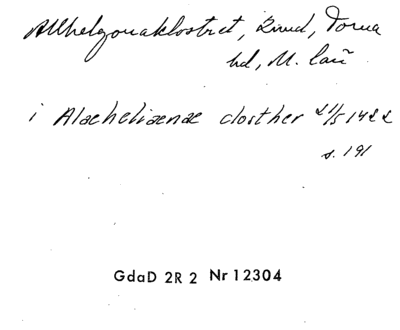 Allhelgonaklostret, Lund, Torna
hd, M. län
i Alæheliænæ closther 21/5 1422
s. 191
GdaD 2R2 Nr 12304